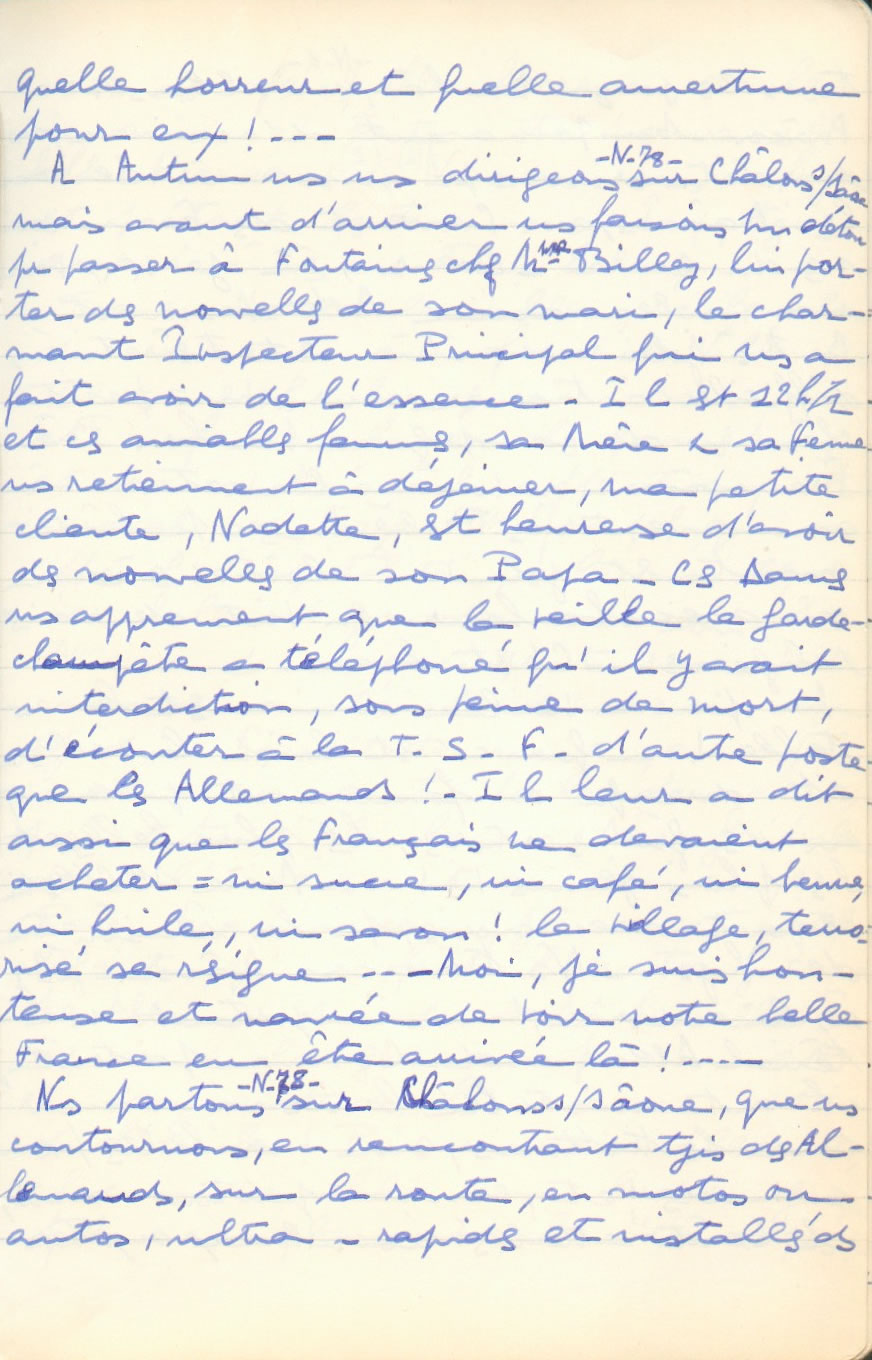 quelle horreur et quelle amertume
pour eux ! ---
A Autun ns ns dirigeons -N.78- sur Châlons s/Sâone
mais avant d'arriver ns faisons un détour
pr passer à Fontaines chez Mme Billey, lui por-
ter des nouvelles de son mari, le char-
mant Inspecteur Principal qui ns a
fait avoir de l'essence - Il est 12h1/2
et ces aimables femmes, sa Mère & sa Femme
ns retiennent à déjeuner, ma petite
cliente, Nadette, est heureuse d'avoir
des nouvelles de son Papa - Ces Dames
ns apprennent que la veille le garde-
champête a téléphoné qu'il y avait
interdiction, sous peine de mort,
d'écouter à la T. S. F. d'autre poste
que les Allemands ! - Il leur a dit
aussi que les Français ne devaient
acheter = ni sucre, ni café, ni beurre,
ni huile, ni savon ! Le village, terro-
risé se résigne --- Moi, je suis hon-
teuse et navrée de voir notre belle
France en être arrivée là ! ----
Ns partons -N.78- sur Châlons s/Sâone, que ns
contournons, en rencontrant tjrs des Al-
lemands, sur la route, en motos ou
autos, ultra-rapides et installés ds